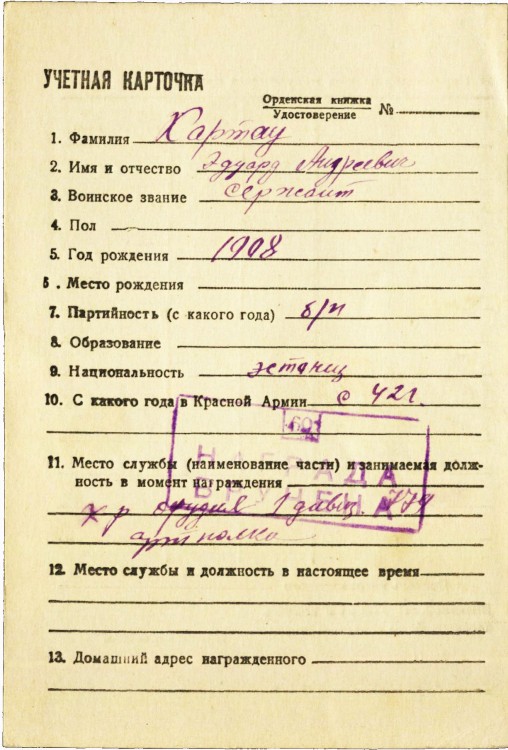 УЧЕТНАЯ КАРТОЧКА
Орденская книжка
Удостоверение №
1. Фамилия Картау
2. Имя и отчество Эдуард Андреевич
3. Воинское звание сержант
4. Пол
5. Год рождения 1908
6. Место рождения
7. Партийность (с какого года) б/п
8. Образование
9. Национальность эстонец
10. С какого года в Красной Армии с 42 г.
60
НАГРАДА
ВРУЧЕНА
11. Место службы (наименование части) и занимаемая долж-
ность в момент награждения
к-р орудия 1 779
артполка
12. Место службы и должность в настоящее время
13. Домашний адрес награжденного